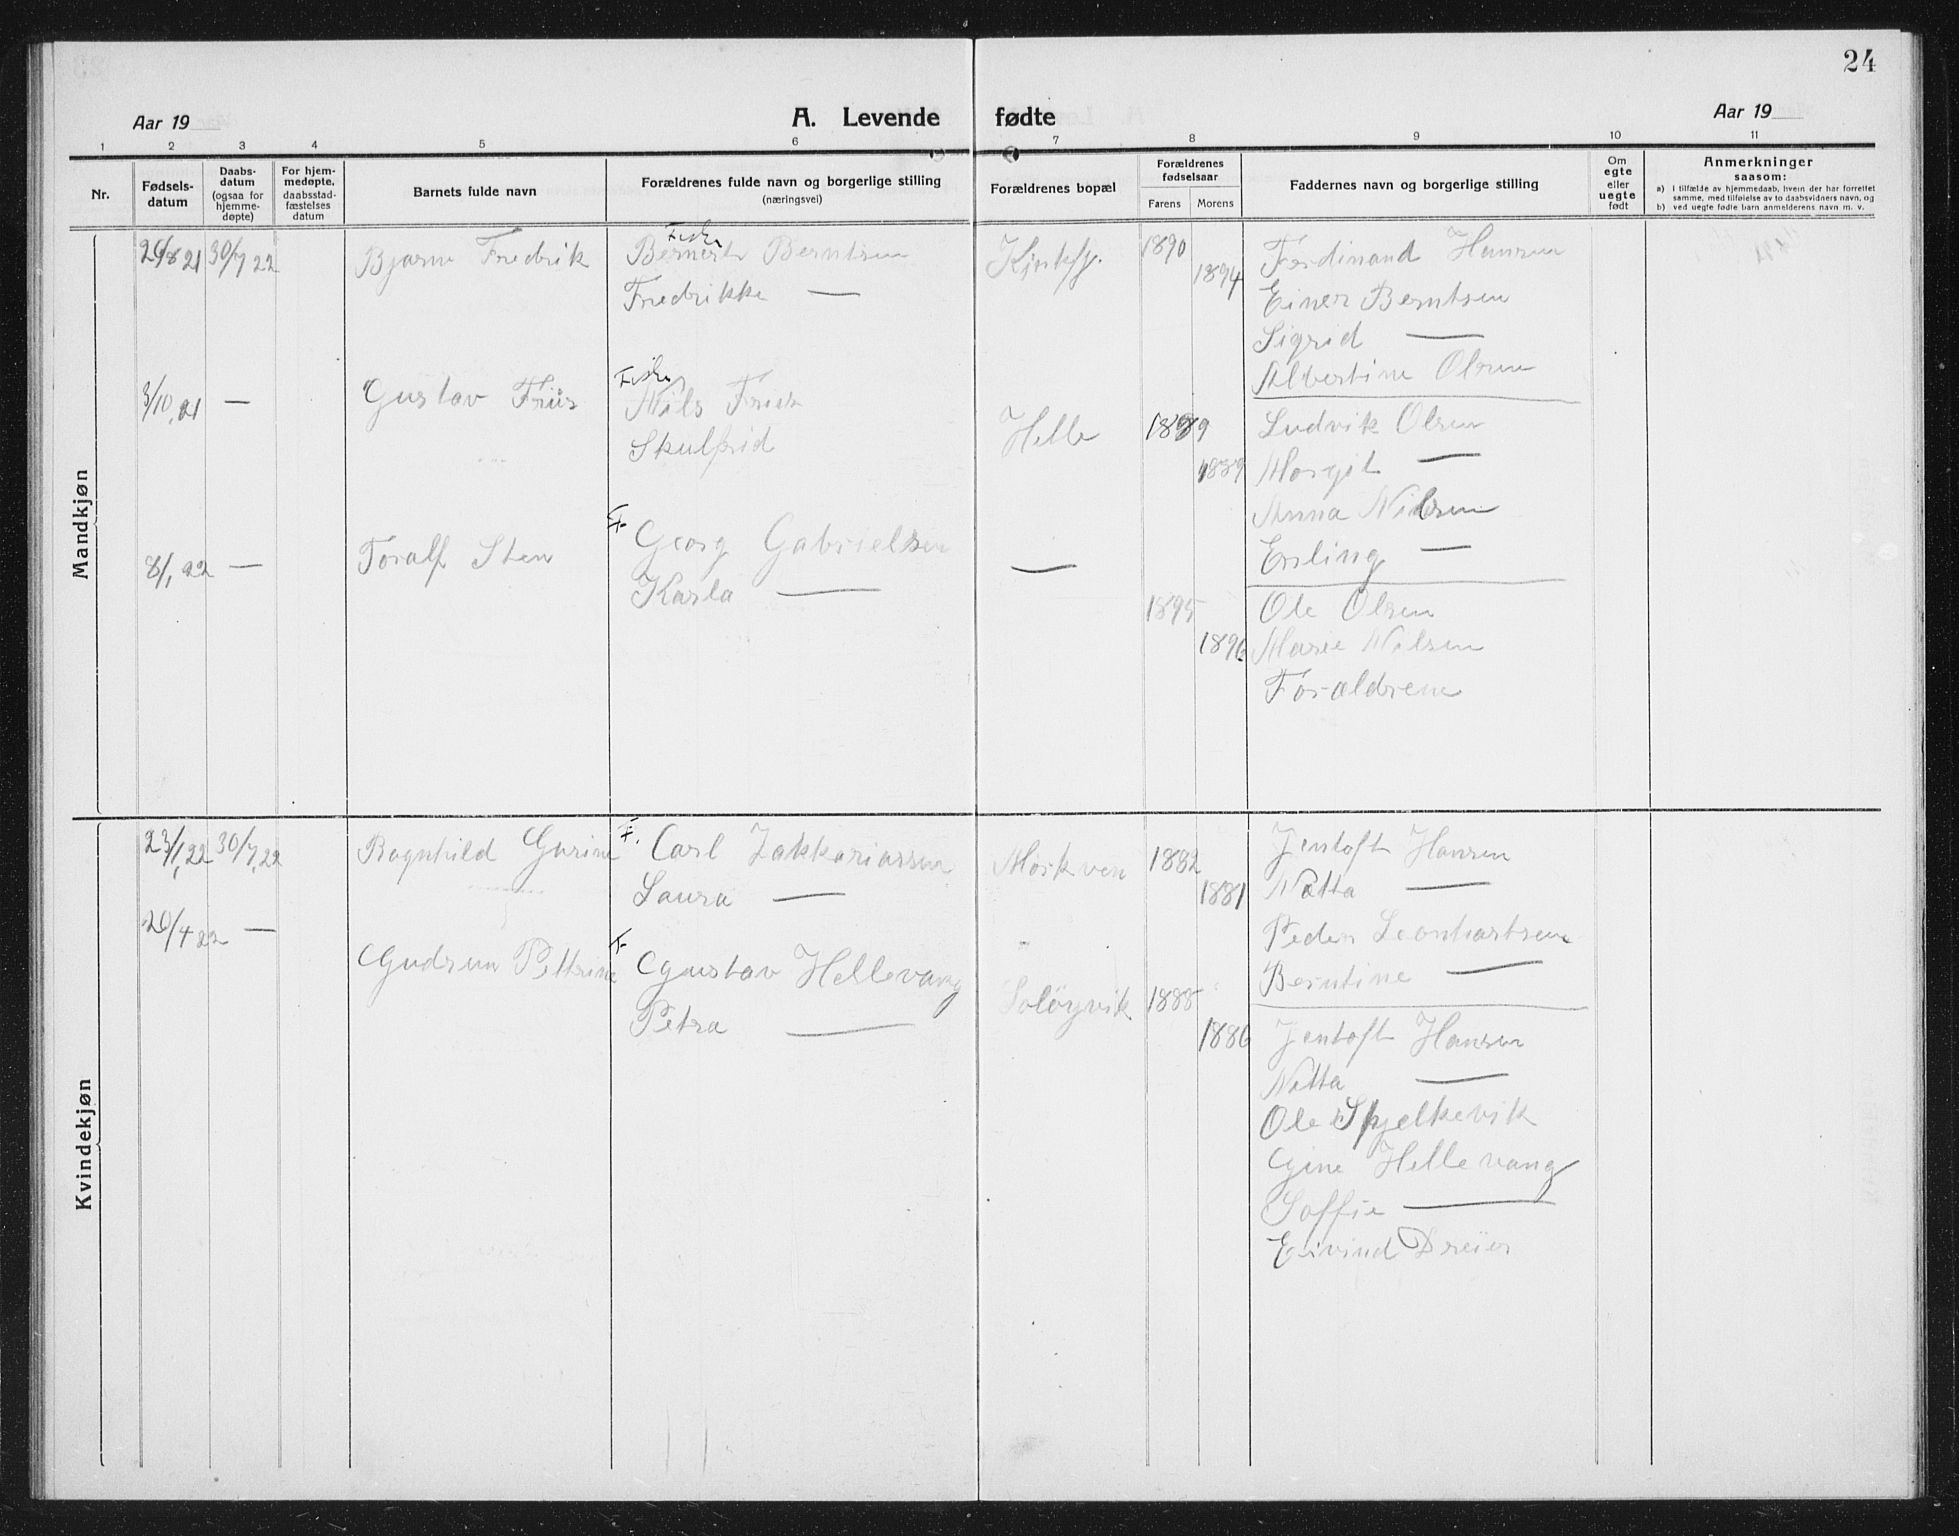 24
Aar 19
A. Levende fødte
Aar 19
1 2 3 4 5 6 7 8 9 10 11
Nr.
Fødsels-
datum
Daabs-
datum
(ogsaa for
hjemme-
døpte)
For hjem-
medøpte,
daabsstad-
fæstelses
datum
Barnets fulde navn
Forældrenes fulde navn og borgerlige stilling
(næringsvei)
Forældrenes bopæl
Forældrenes
fødselsaar
Farens Morens
Faddernes navn og borgerlige stilling
Om
egte
eller
uegte
født
Anmerkninger
saasom:
a) i tilfælde av hjemmedaab, hvem der har forrettet
samme, med tilføielse av to daabsvidners navn, og
b) ved uegte fødte barn anmelderens navn m. v.
Mandkjøn
/8 21 30/7 22 Bjarne Fredrik
Fisker
Berntsen
Fredrikke —
1890
1894
Ferdinand Hansen
Einer Berntsen
Sigrid —
Albertine Olsen
3/10, 21 — Gustav Friis
Fisker
Nils
Skulfrid
Helle
1889
1889
Ludvik Olsen
Margit —
Anna Nilsen
Erling —
8/1, 22 — Toralf Sten
F.
Georg Gabrielsen
Karla —
—
1895
1896
Ole Olsen
Marie Nilsen
Forældrene
Kvindekjøn
23/1, 22 30/7, 22 Ragnhild Gurine
F. Carl Zakkariassen
Laura —
Morkven
1882
1881
Jentoft Hansen
Netta —
Peder Leonhartsen
Berntine —
20/4 22 — Gudrun Pettrine
F.
Gustav Hellevang
Petra —
Soløyvik
1885
1886
Jentoft Hansen
Netta —
Ole Spjelkevik
Gine Hellevang
Soffie —
Eivind Dreier